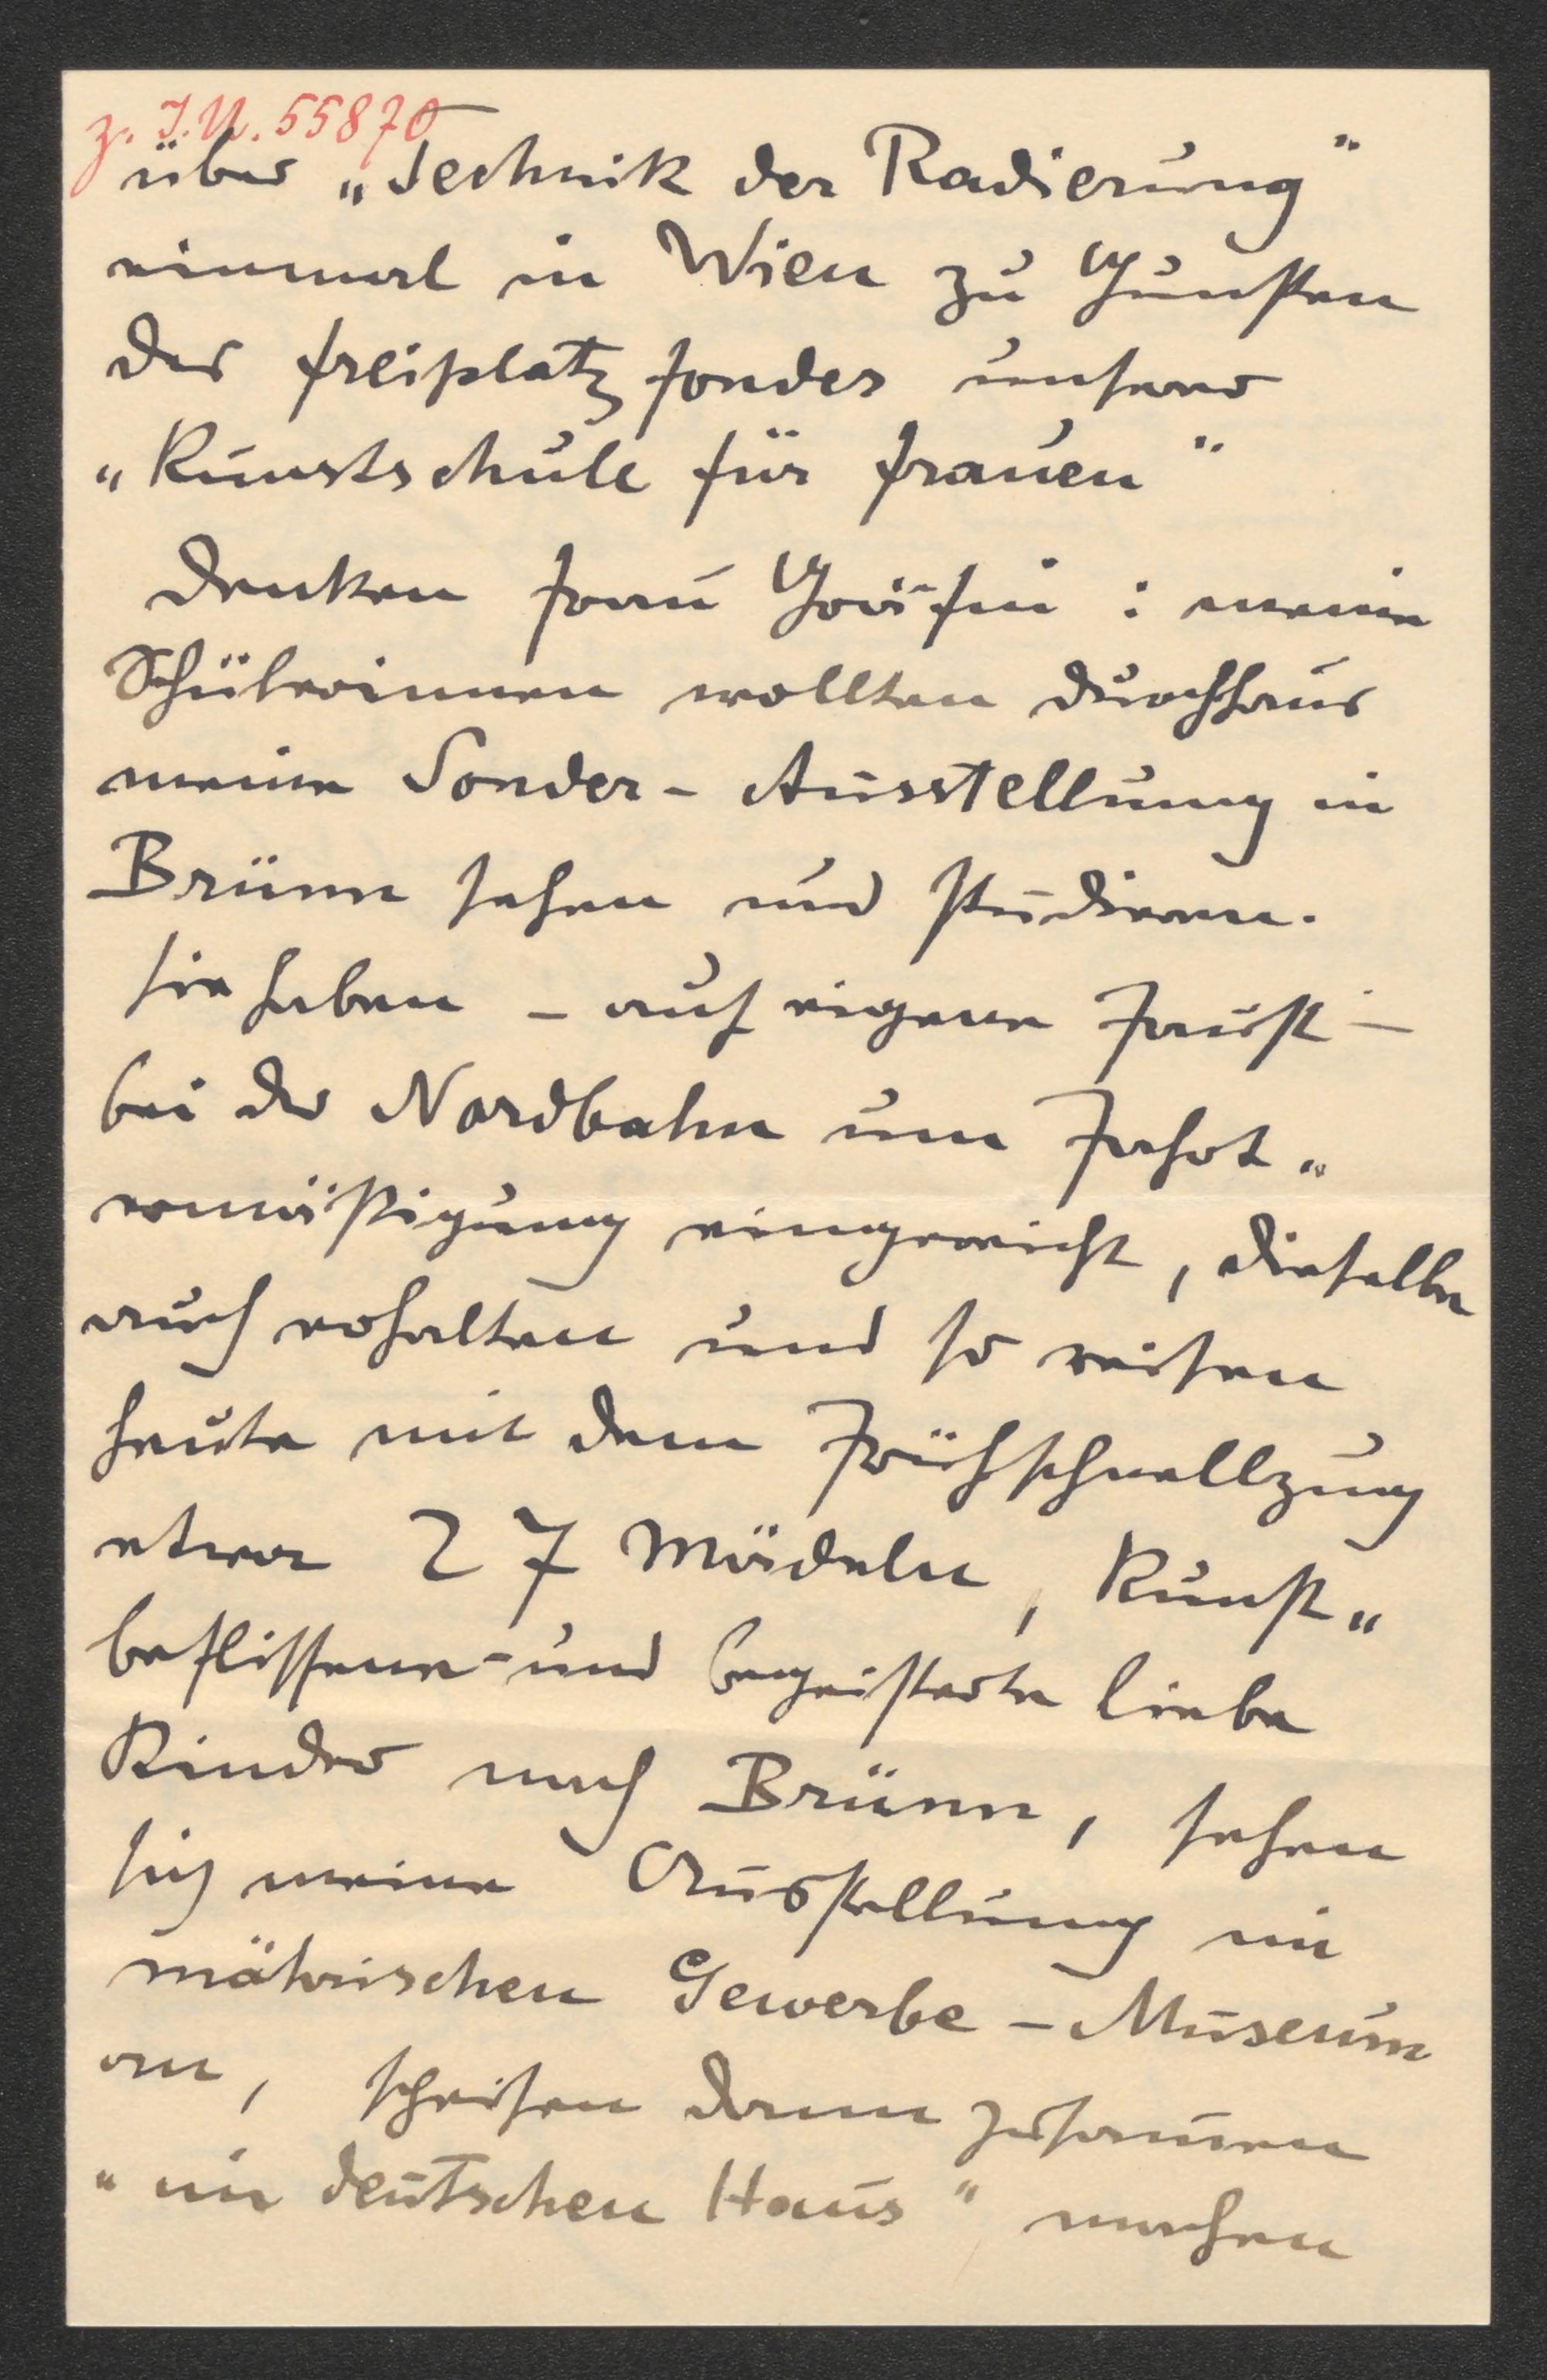 z. I.N. 55870
über „Technik der Radierung"
einmal in Wien zu Gunsten
des Freiplatzfondes unserer
„Kunstschule für Frauen"
Denken Frau Gräfin : meine
Schülerinnen wollten durchaus
meine Sonder-Ausstellung in
Brünn sehen und studieren.
Sie haben – auf eigene Faust –
bei der Nordbahn um Fahrt„
ermäßigung eingereicht, dieselbe
auch erhalten und so reisen
heute mit dem Frühschnellzug
etwa 27 Mädeln, Kunst„
beflissene- und begeisterte liebe
Kinder nach Brünn, sehen
sich meine Ausstellung im
mährischen Gewerbe-Museum
an, speisen dann zusammen
„im deutschen Haus" machen